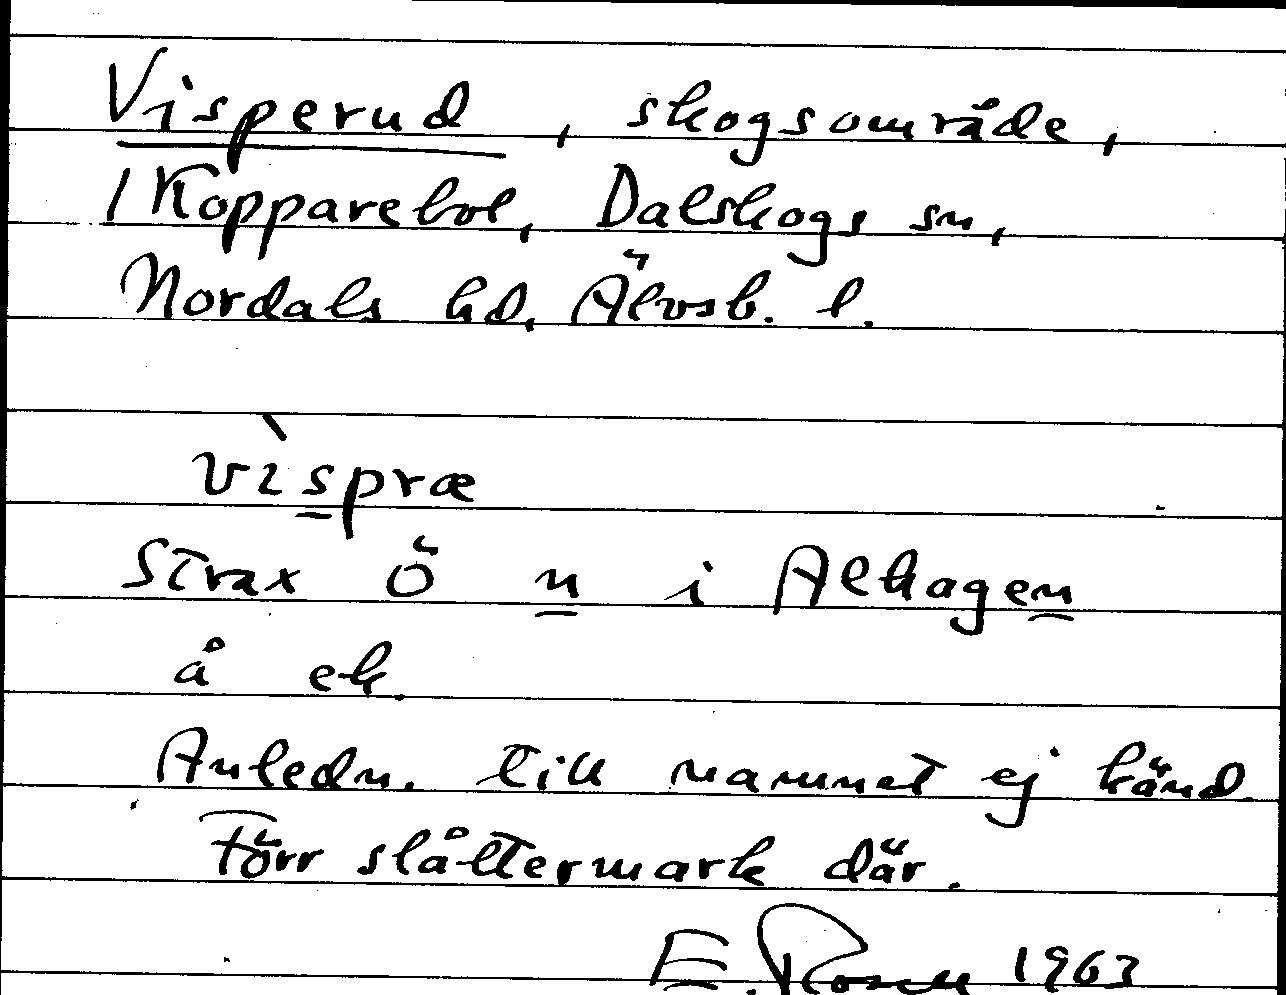 Visperud, skogsområde,
i Kopparebol, Dalskogs sn,
Nordals hd, Älvsb. l.
vìspræ
Strax Ö n i Alhagen
å ek.
Anledn. till namnet ej känd.
Förr slåttermark där.
E. Rosell 1963